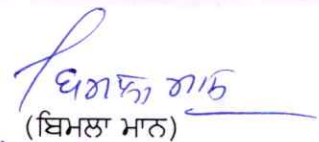 ਬਿਮਲਾ ਮਾਨ
(ਬਿਮਲਾ ਮਾਨ)